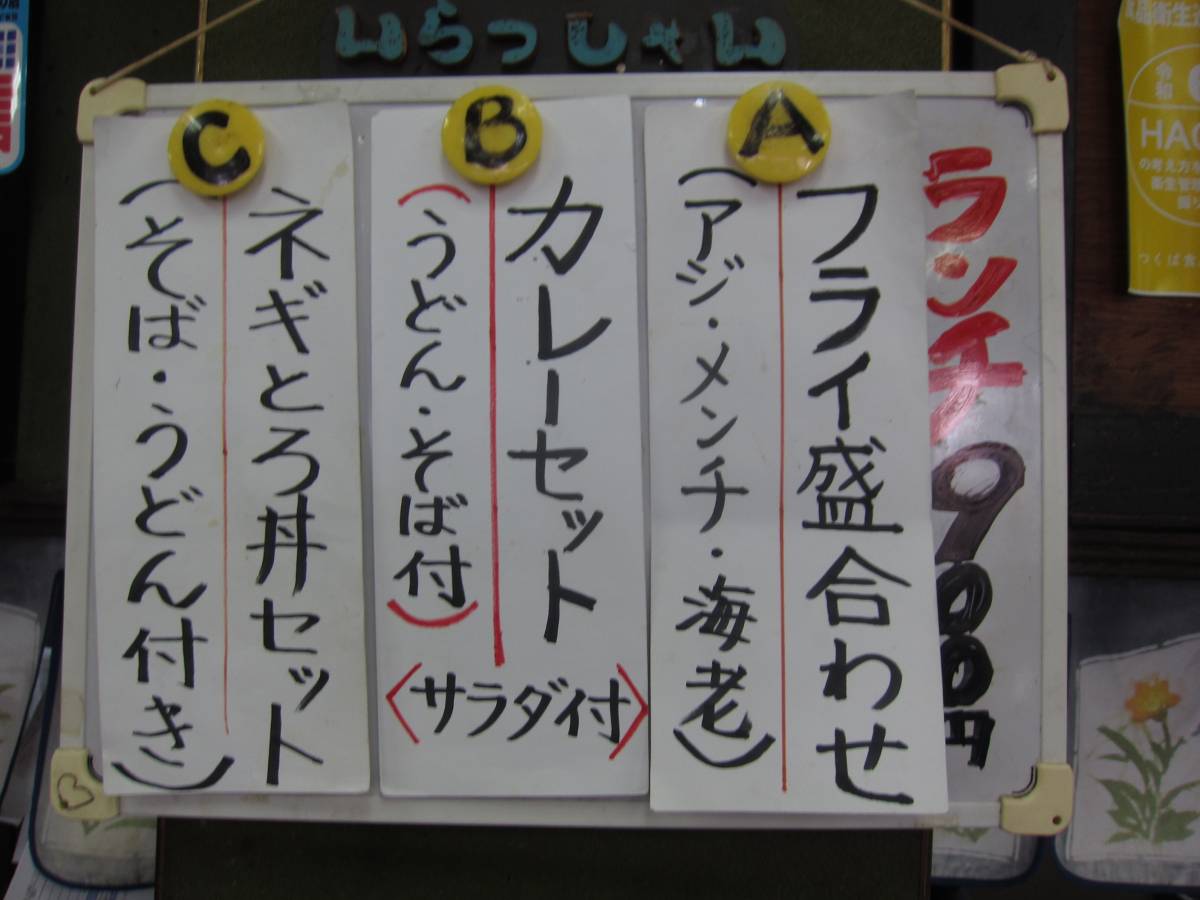 いらっしゃい
ランチ 900円
A
フライ盛合わせ
(アジ・メンチ・海老)
B
カレーセット
(うどん・そば付)
〈サラダ付〉
C
ネギとろ丼セット
(そば・うどん付き)
令和
HAC
の考え方
衛生管
つくば食